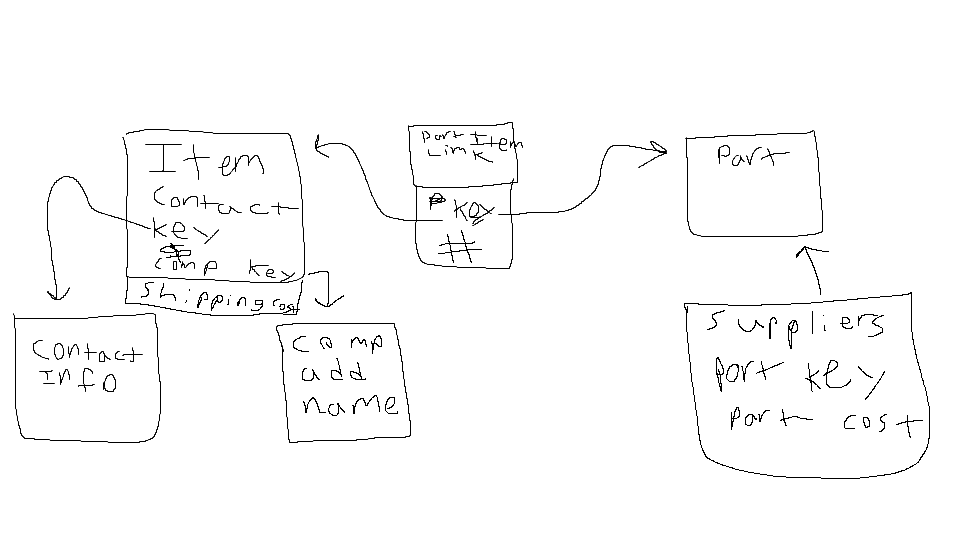 Item
Contact
key
comp key
Shipping cost
Part Item
Link
key
#
Part
Contact
Info
comp
add
name
Suppliers
part key
part cost